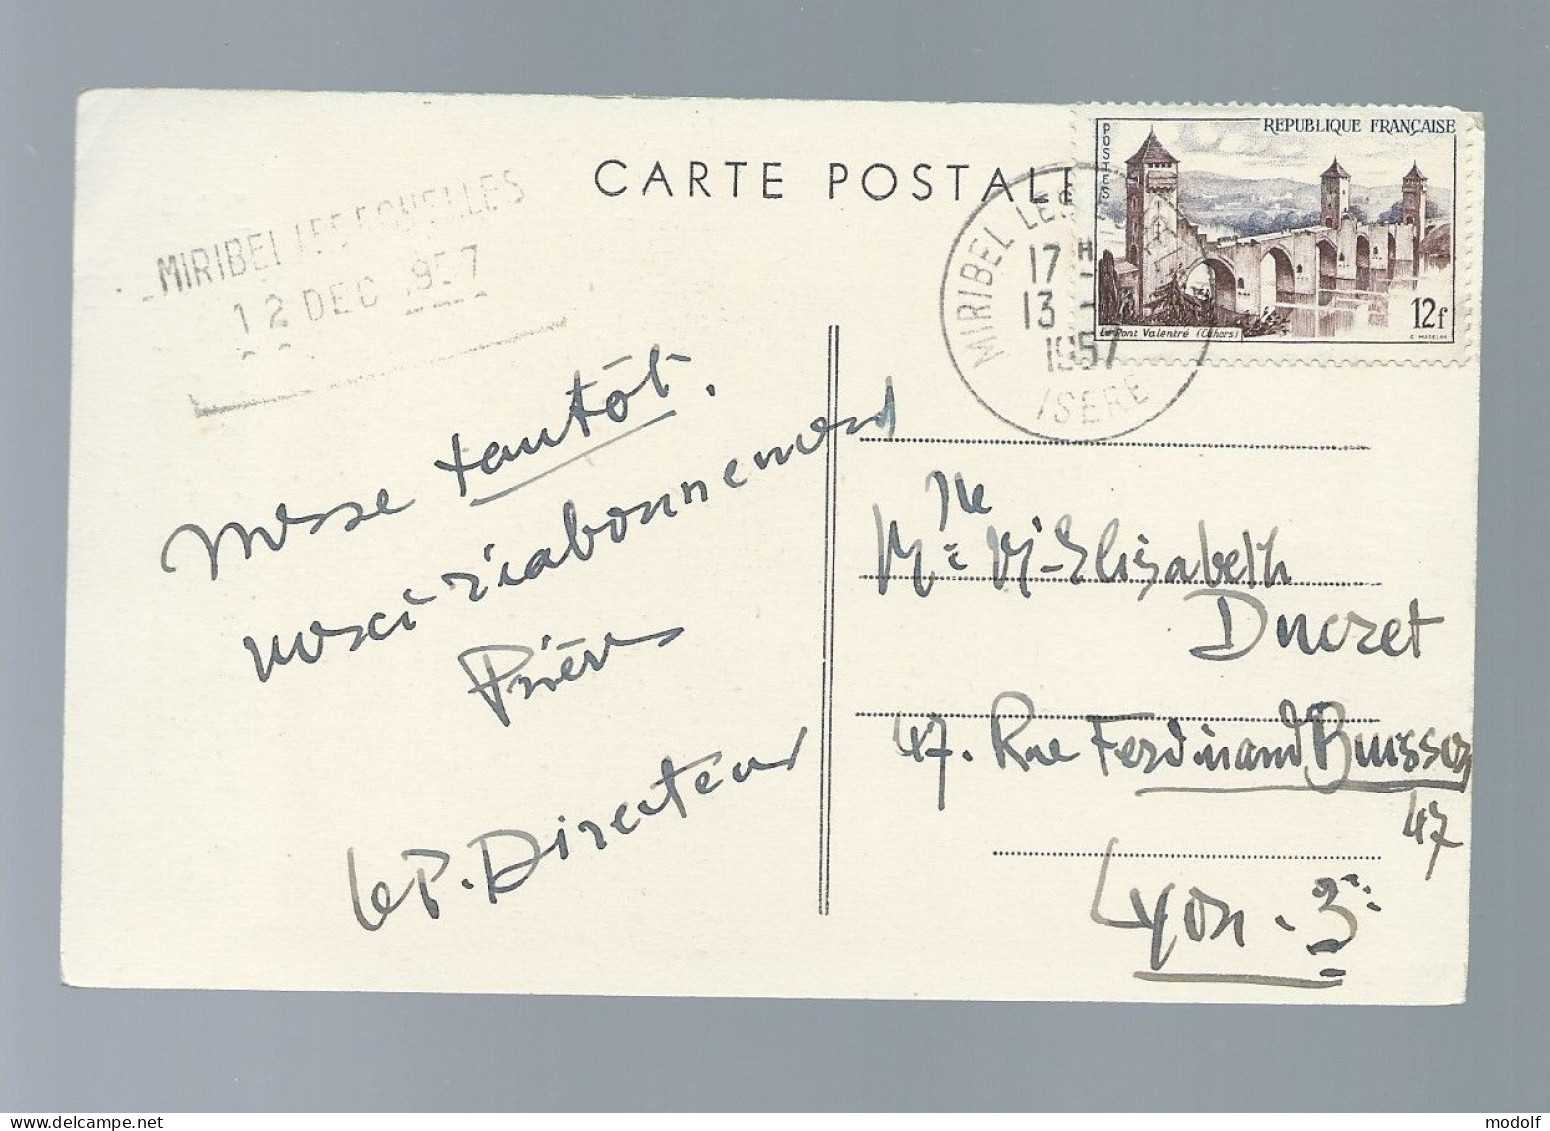 CARTE POSTALE
REPUBLIQUE FRANÇAISE
POSTES
12f
Le Pont Valentré (Cahors)
C. MAZELIN
MIRIBEL LES
17 H
13 -
1957
ISERE
MIRIBEL LES ECHELLES
12 DEC 1957
Messe tantôt.
merci réabonnement
Prières
le P. Directeur
Mlle M-Elizabeth
Ducret
47. Rue Ferdinand Buisson
47
Lyon. 3e
modolf